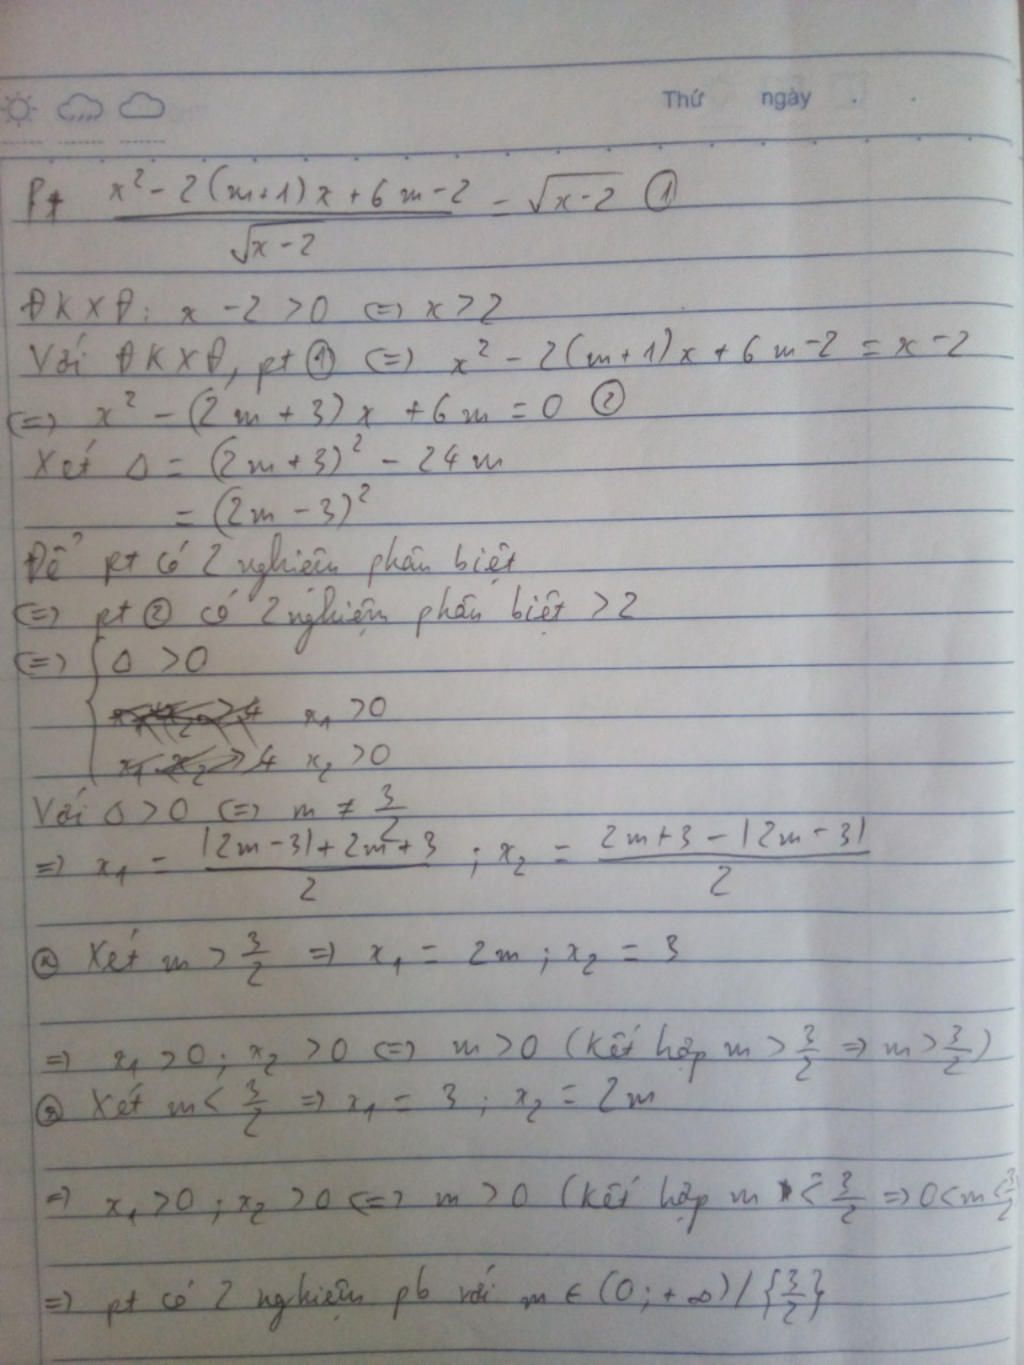 Thứ ngày . .
Pt (x² - 2(m+1)x + 6m - 2)/√(x-2) = √(x-2) ①
ĐKXĐ: x - 2 > 0 <=> x > 2
Với ĐKXĐ, pt ① <=> x² - 2(m+1)x + 6m - 2 = x - 2
<=> x² - (2m+3)x + 6m = 0 ②
Xét Δ = (2m+3)² - 24m
= (2m-3)²
Để pt có 2 nghiệm phân biệt
<=> pt ② có 2 nghiệm phân biệt > 2
<=> { Δ > 0
x₁ > 0
x₂ > 0
Với Δ > 0 <=> m ≠ 3/2
=> x₁ = (|2m-3| + 2m + 3)/2 ; x₂ = (2m + 3 - |2m-3|)/2
Xét m > 3/2 => x₁ = 2m ; x₂ = 3
=> x₁ > 0 ; x₂ > 0 <=> m > 0 (kết hợp m > 3/2 => m > 3/2)
Xét m < 3/2 => x₁ = 3 ; x₂ = 2m
=> x₁ > 0 ; x₂ > 0 <=> m > 0 (kết hợp m < 3/2 => 0 < m < 3/2
=> pt có 2 nghiệm pb với m ∈ (0; +∞) / {3/2}